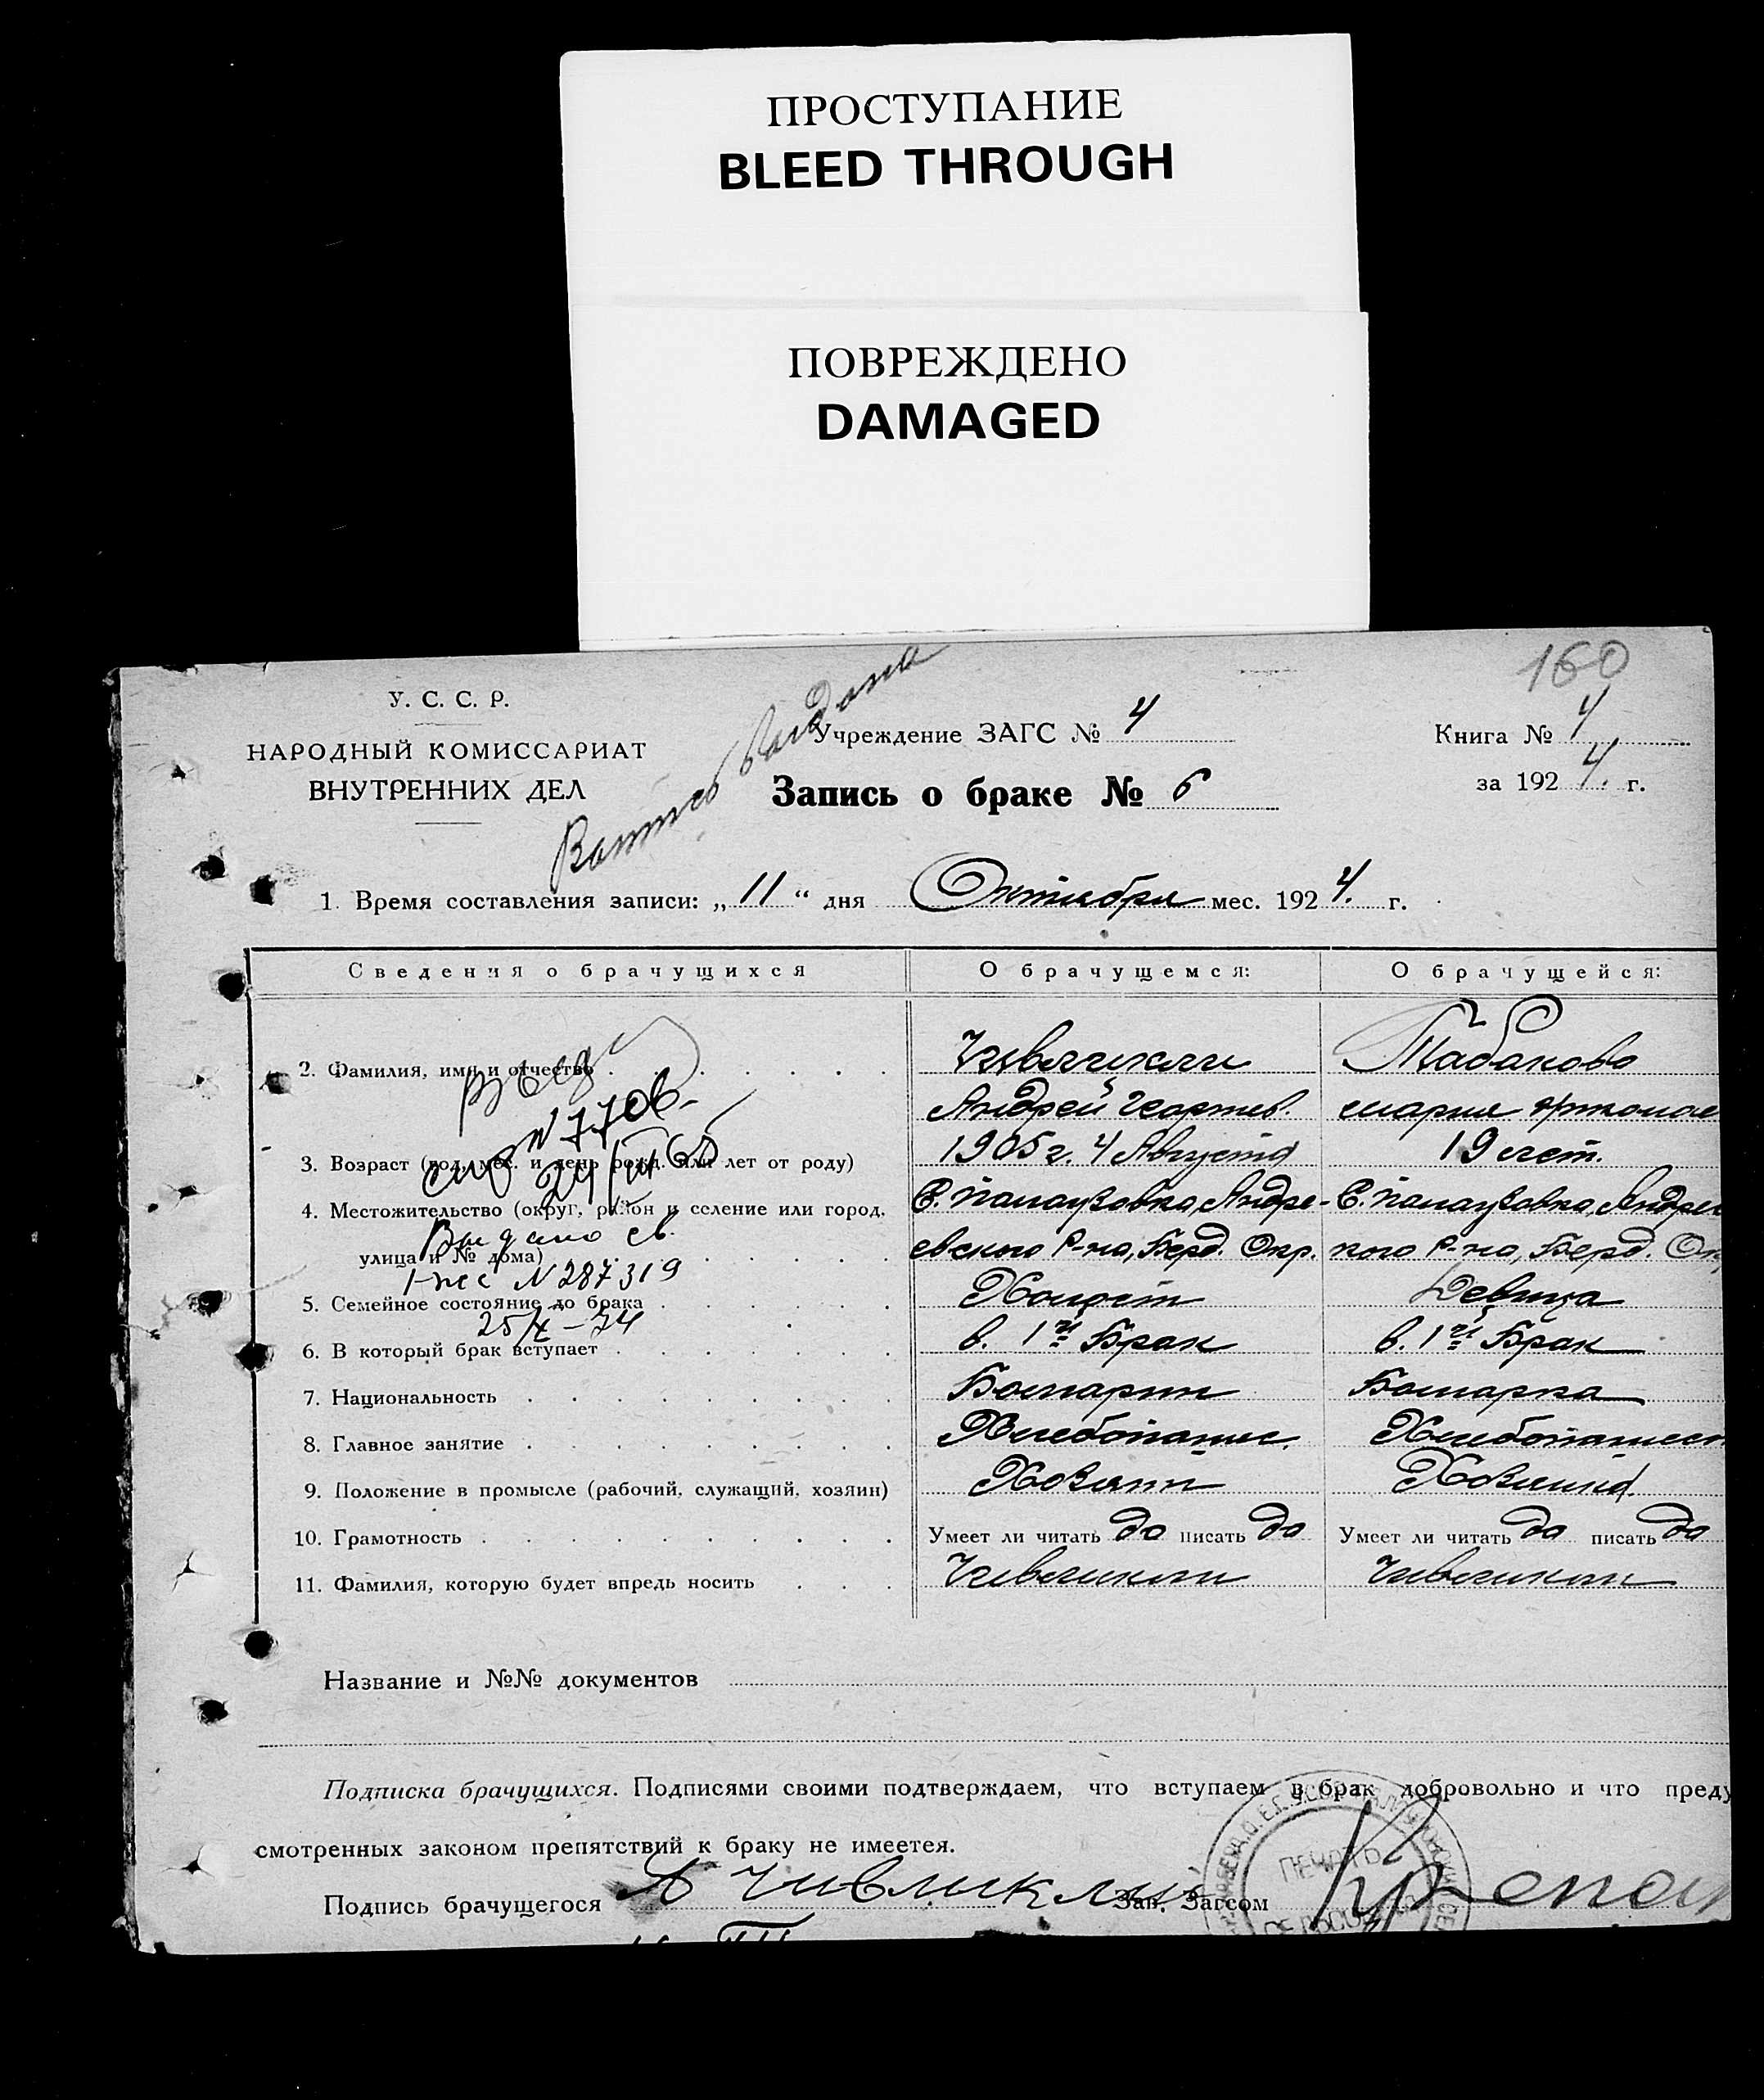 ПРОСТУПАНИЕ
BLEED THROUGH
ПОВРЕЖДЕНО
DAMAGED
160
У. С. С. Р.
НАРОДНЫЙ КОМИССАРИАТ
ВНУТРЕННИХ ДЕЛ
Учреждение ЗАГС № 4
Книга № 4
за 1924. г.
Запись о браке № 6
1. Время составления записи: „11“ дня Октября мес. 1924. г.
Сведения о брачущихся О брачущемся: О брачущейся:
2. Фамилия, имя и отчество Чивчиклли Табакова
Андрей Георгиев. Мария
N 7706
3. Возраст (год, мес. и день рожд. или лет от роду) 1905 г. 4 Августа 19 лет.
24/III 65
4. Местожительство (округ, район и селение или город, С. Палаузовка, Андре- С. Палаузовка, Андреев
Выдано св.
улица и № дома) евского Р-на, Берд. Окр. кого Р-на, Берд. Ок
N 287319
5. Семейное состояние до брака Холост Девица
25/X – 74
6. В который брак вступает в. 1й Брак в. 1й Брак
7. Национальность Болгарин Болгарка
8. Главное занятие Хлебопашес. Хлебопашест
9. Положение в промысле (рабочий, служащий, хозяин) Хозяин Хозяйка
10. Грамотность Умеет ли читать да писать да Умеет ли читать да писать да
11. Фамилия, которую будет впредь носить Чивликли Чивликли
Название и №№ документов
Подписка брачущихся. Подписями своими подтверждаем, что вступаем в брак добровольно и что преду
смотренных законом препятствий к браку не имеется.
Подпись брачущегося А Чивликлий Зав. Загсом
ПЕЧАТЬ